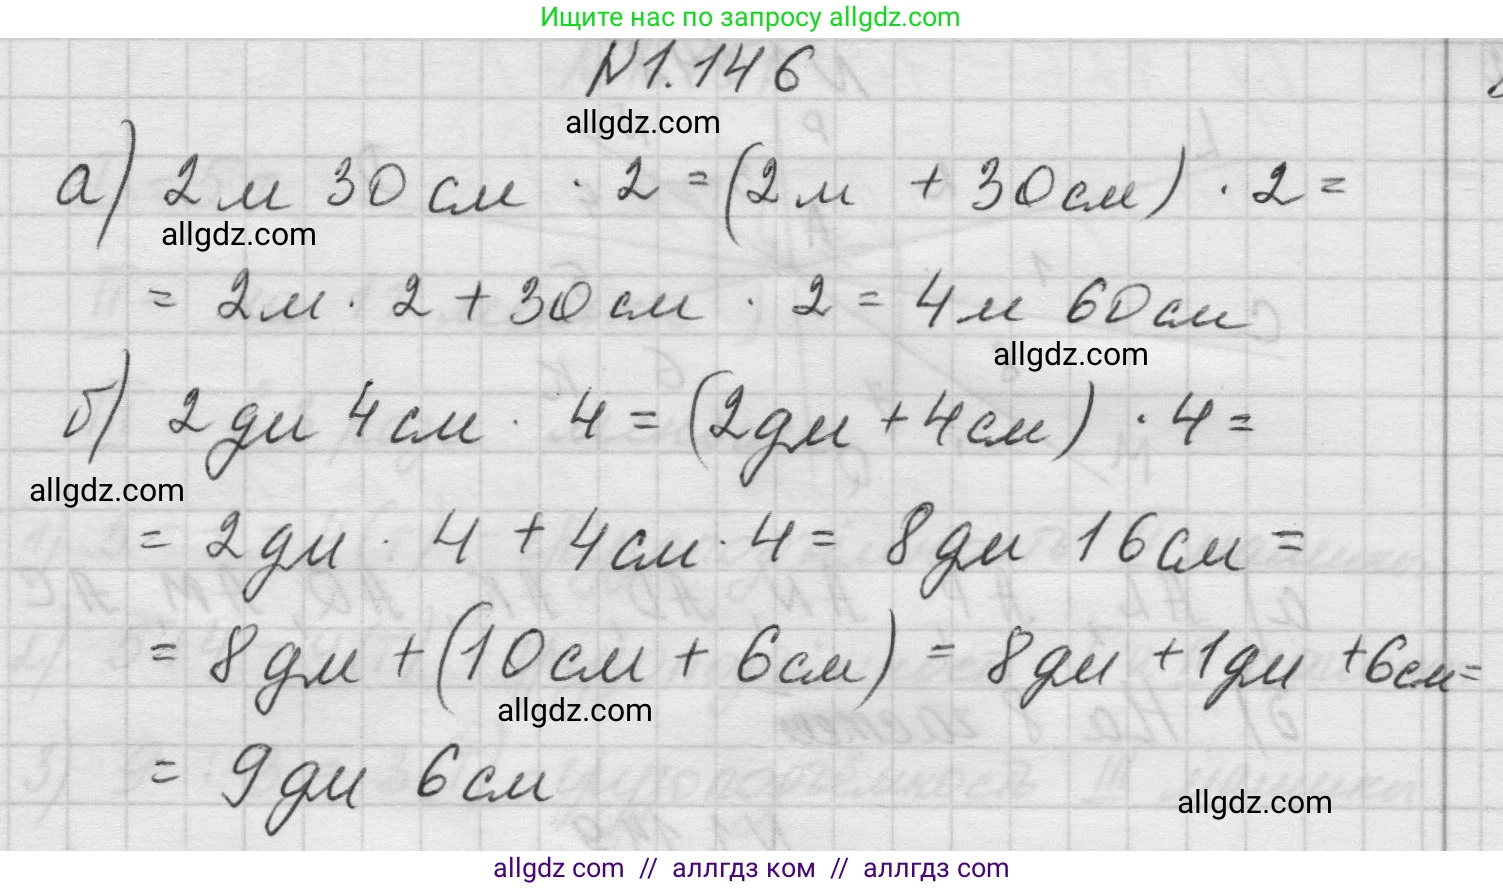 Ищите нас по запросу allgdz.com
N1.146
allgdz.com
а) 2м 30см · 2 = (2м + 30см) · 2 =
allgdz.com
= 2м · 2 + 30см · 2 = 4м 60см
allgdz.com
б) 2дм 4см · 4 = (2дм + 4см) · 4 =
allgdz.com
= 2дм · 4 + 4см · 4 = 8дм 16см =
= 8дм + (10см + 6см) = 8дм + 1дм + 6см =
allgdz.com
= 9дм 6см
allgdz.com
allgdz.com // аллгдз ком // allgdz.com